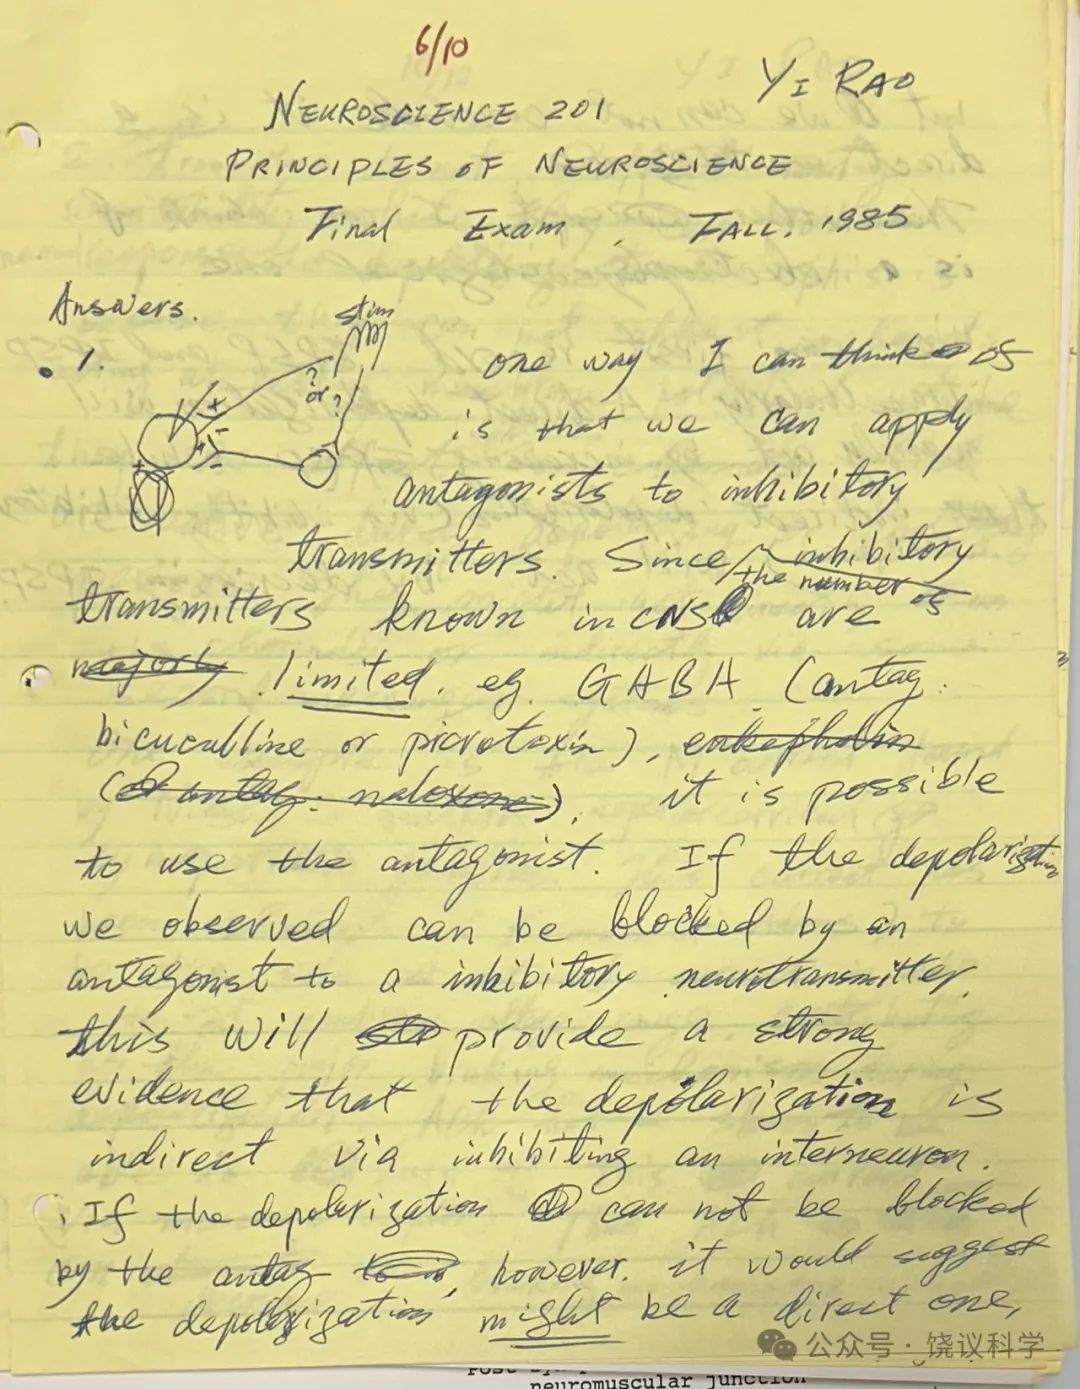 6/10
YI RAO
NEUROSCIENCE 201
PRINCIPLES OF NEUROSCIENCE
Final Exam, FALL, 1985
Answers.
stim
1.
? or ?
+
-
+
-
one way I can think of
is that we can apply
antagonists to inhibitory
transmitters. Since inhibitory
the number of
transmitters known in CNS are
majorly limited, eg. GABA (antag.
bicuculline or picrotoxin), enkephalin
(antag. naloxone), it is possible
to use the antagonist. If the depolarization
we observed can be blocked by an
antagonist to a inhibitory neurotransmitter,
this will provide a strong
evidence that the depolarization is
indirect via inhibiting an interneuron.
If the depolarization can not be blocked
by the antag, however, it would suggest
the depolarization might be a direct one,
公众号·饶议科学
neuromuscular junction